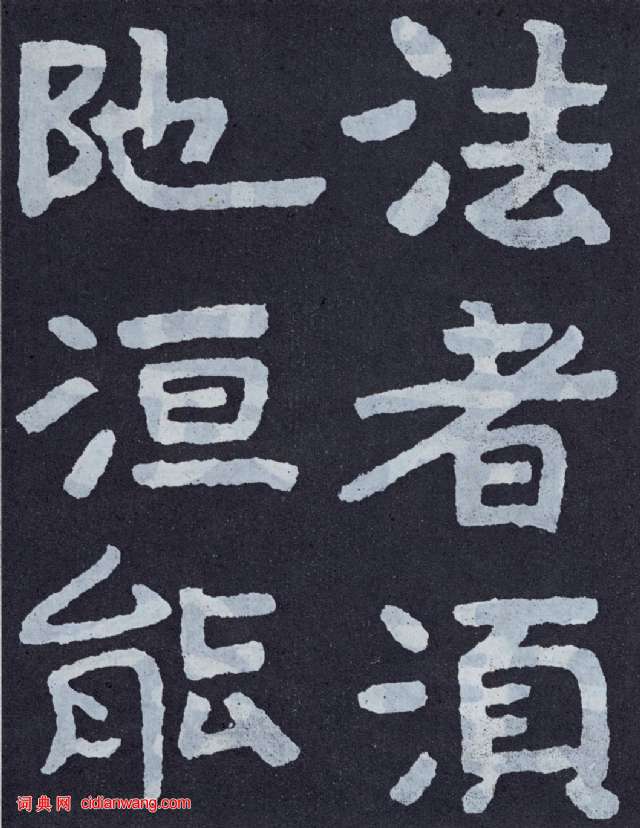 法者湏
阤洹能
词典网 cidianwang.com